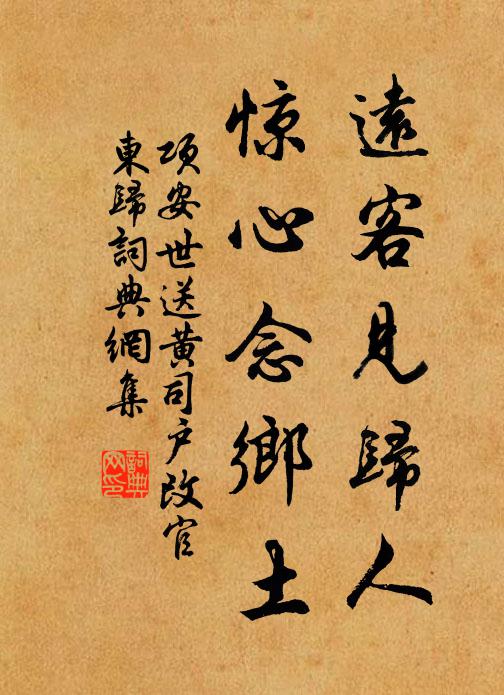 遠客見歸人
惊心念鄉土
項安世送黄司户改官
東歸詞典網集
詞典網印